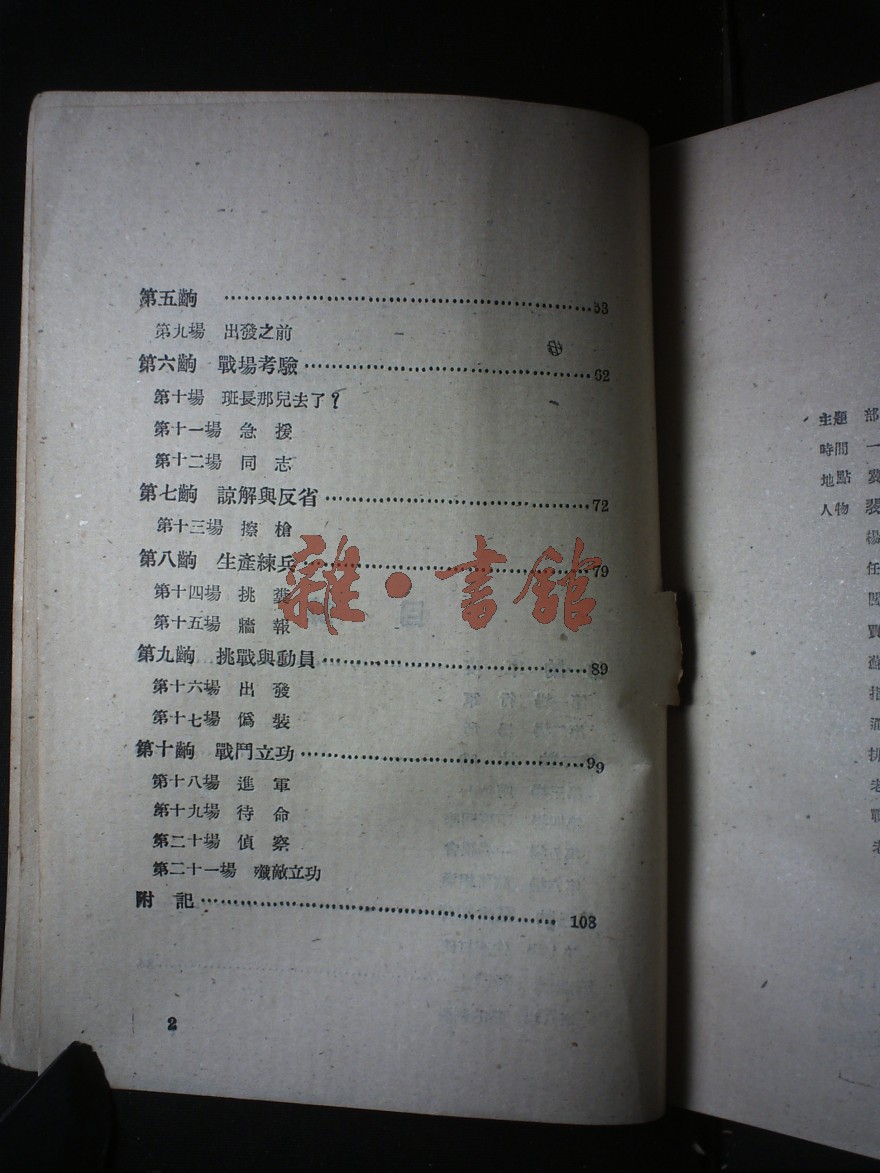 第五齣 ……53
第九場 出發之前
第六齣 戰場考驗……62
第十場 班長那兒去了？
第十一場 急援
第十二場 同志
第七齣 諒解與反省……72
第十三場 擦槍
第八齣 生產練兵……79
第十四場 挑糞
第十五場 牆報
第九齣 挑戰與動員……89
第十六場 出發
第十七場 僞裝
第十齣 戰鬥立功……99
第十八場 進軍
第十九場 待命
第二十場 偵察
第二十一場 殲敵立功
附記……108
2
雜·書館
主題 部
時間 一
地點
人物 裴
楊
任
賈
蘇
指
排
老
戰
老